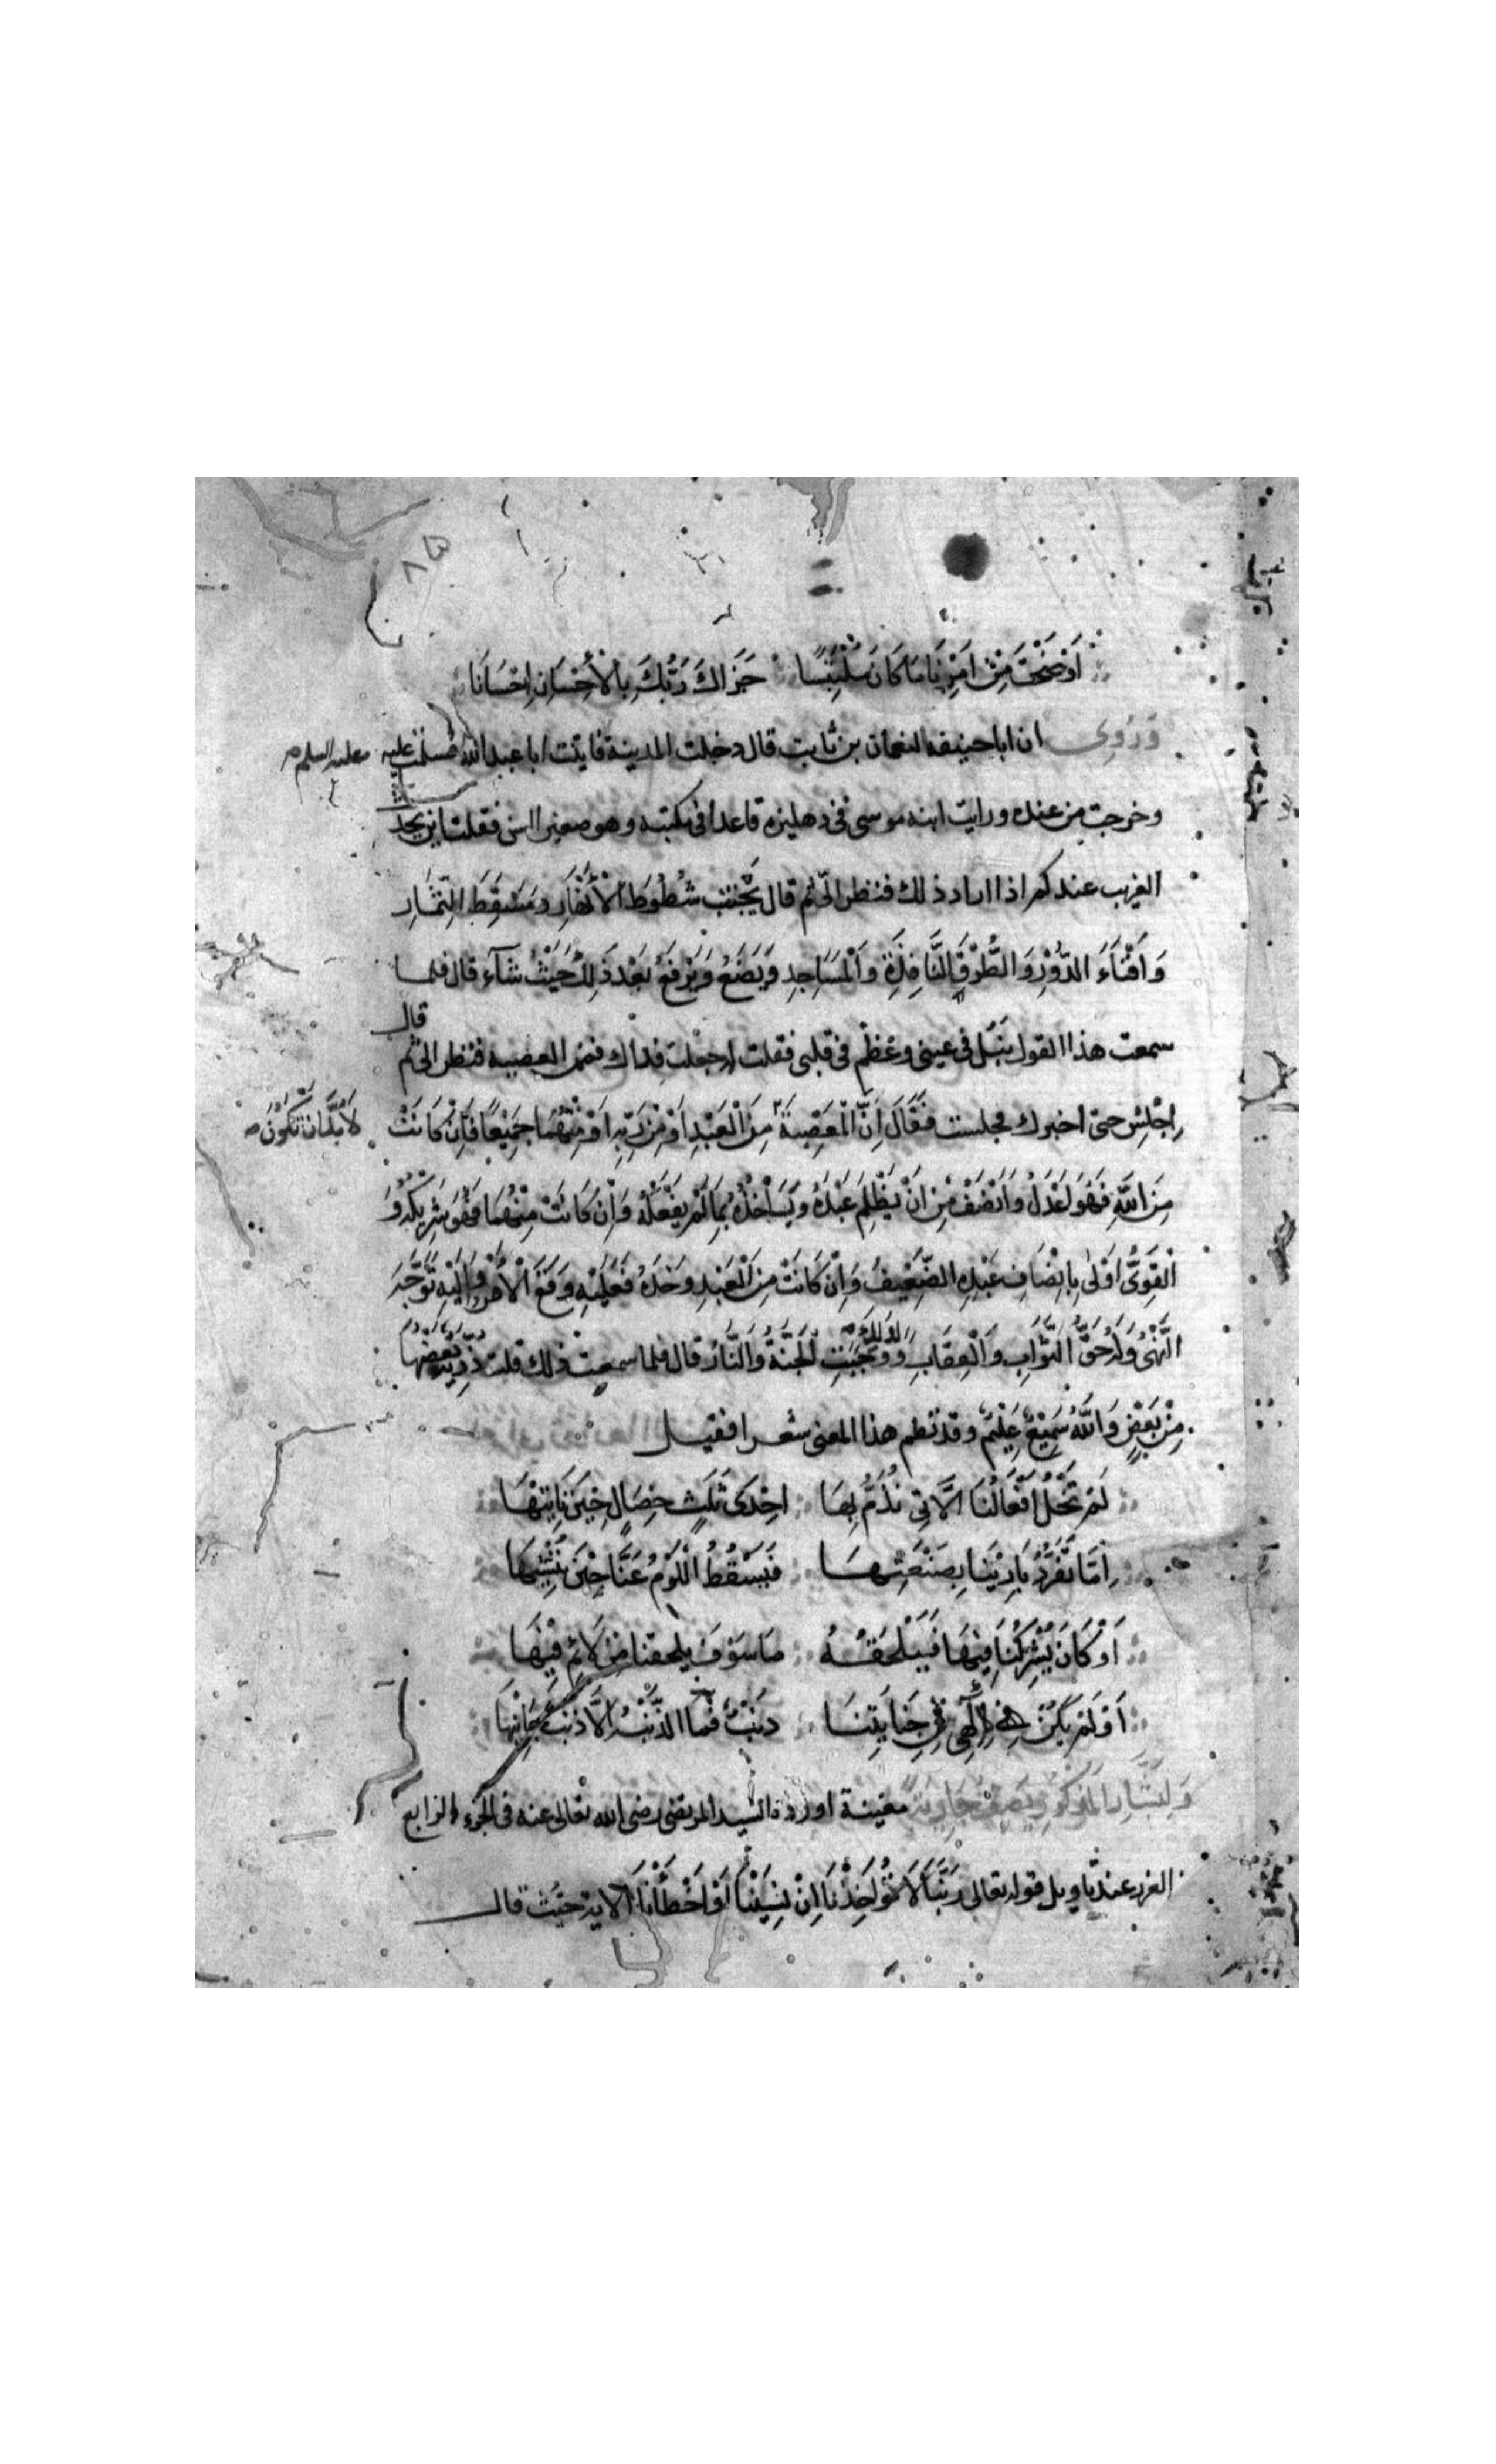 ٨٥
اَوْضَحْتَ مِنْ اَمْرِنَا مَا كَانَ مُلْتَبِسًا جَزَاكَ رَبُّكَ بِالْاِحْسَانِ اِحْسَانَا
وَرُوِىَ ان اباحنيفه النعمان بن ثابت قال دخلت المدينة فاتيت اباعبدالله فسلمت عليه
عليه السلم صح
وخرجت من عنده ورايت ابنه موسى فى دهليزه قاعدا فى مكتبه وهو صغير السن فقلت اين يحدث
الغريب عندكم اذا اراد ذلك فنظر الىّ ثم قال يَجْتَنِبُ شُطُوطَ الْاَنْهَارِ وَمَسْقَطَ الثِّمَارِ
وَاَفْنَاءَ الدُّوْرِ وَالطُّرُقَ النَّافِذَةِ وَالْمَسَاجِدِ وَيَضَعُ وَيَرْفَعُ بَعْدَ ذٰلِكَ حَيْثُ شَآءَ قال فلما
سمعت هذا القول نَبُلَ فى عينى وعَظُمَ فى قلبى فقلت له جعلت فداك فممن المعصيه فنظر الىّ ثم قال
اِجْلِسْ حتى اخبرك فجلست فَقَالَ اِنَّ الْمَعْصِيَةَ مِنَ الْعَبْدِ اَوْ مِنْ رَبِّهِ اَوْ مِنْهُمَا جَمِيْعًا فَاِنْ كَانَتْ
لَابُدَّ اَنْ تَكُوْنَ صح
مِنَ اللّٰهِ فَهُوَ اَعْدَلُ وَاَنْصَفُ مِنْ اَنْ يَظْلِمَ عَبْدَهُ وَيَأْخُذَهُ بِمَا لَمْ يَفْعَلْهُ وَاِنْ كَانَتْ مِنْهُمَا فَهُوَ شَرِيْكُهُ وَ
الْقَوِىُّ اَوْلٰى بِاِنْصَافِ عَبْدِهِ الضَّعِيْفِ وَاِنْ كَانَتْ مِنَ الْعَبْدِ وَحْدَهُ فَعَلَيْهِ وَقَعَ الْاَمْرُ وَاِلَيْهِ تَوَجَّهَ
النَّهْىُ وَلَهُ حَقُّ الثَّوَابِ وَالْعِقَابِ وَلِذٰلِكَ وَجَبَتِ الْجَنَّةُ وَالنَّارُ قال فلما سمعت ذلك قلت ذُرِّيَّةً بَعْضُهَا
مِنْ بَعْضٍ وَاللّٰهُ سَمِيْعٌ عَلِيْمٌ وقد نظم هذا المعنى شعرا فقيل
لَمْ تَخْلُ اَفْعَالُنَا الَّاتِى نُذَمُّ بِهَا اِحْدٰى ثَلٰثِ خِصَالٍ حِيْنَ نَاْتِيْهَا
اِمَّا تَفَرَّدُ بَارِيْنَا بِصَنْعَتِهَا فَيَسْقُطُ اللَّوْمُ عَنَّا حِيْنَ نُنْشِيْهَا
اَوْ كَانَ يُشْرِكُنَا فِيْهَا فَيَلْحَقُهُ مَا سَوْفَ يلحقنا مِنْ لَائِمٍ فِيْهَا
اَوْ لَمْ يَكُنْ لِاِلٰهِى فِى جِنَايَتِنَا ذَنْبٌ فَمَا الذَّنْبُ اِلَّا ذَنْبُ جَانِيْهَا
وَلِبَشَّارِ الْمَذْكُوْرِ يَصِفُ جَارِيَةً مغنية اورده السيد المرتضى رضى الله تعالى عنه فى الجزء الرابع
الغرر عند تاويل قوله تعالى رَبَّنَا لَا تُؤَاخِذْنَا اِنْ نَسِيْنَا اَوْ اَخْطَأْنَا الاية حَيْثُ قال